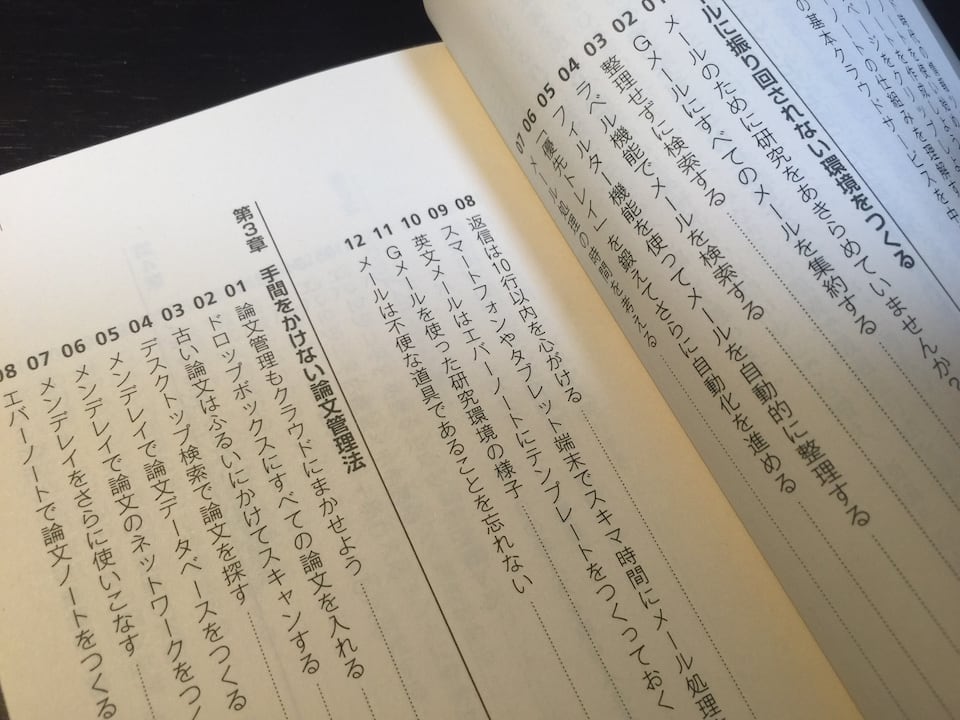 の基本クラウドサービスを中
ルに振り回されない環境をつくる
01 メールのために研究をあきらめていませんか?
02 Gメールにすべてのメールを集約する
03 整理せずに検索する
04 ラベル機能でメールを検索する
05 フィルター機能を使ってメールを自動的に整理する
06 「優先トレイ」を鍛えてさらに自動化を進める
07 メール処理の時間を考える
08 返信は10行以内を心がける
09 スマートフォンやタブレット端末でスキマ時間にメール処理
10 英文メールはエバーノートにテンプレートをつくっておく
11 Gメールを使った研究環境の様子
12 メールは不便な道具であることを忘れない
第3章 手間をかけない論文管理法
01 論文管理もクラウドにまかせよう
02 ドロップボックスにすべての論文を入れる
03 古い論文はふるいにかけてスキャンする
04 デスクトップ検索で論文を探す
05 メンデレイで論文データベースをつくる
06 メンデレイで論文のネットワークをつ
07 メンデレイをさらに使いこなす
08 エバーノートで論文ノートをつくる